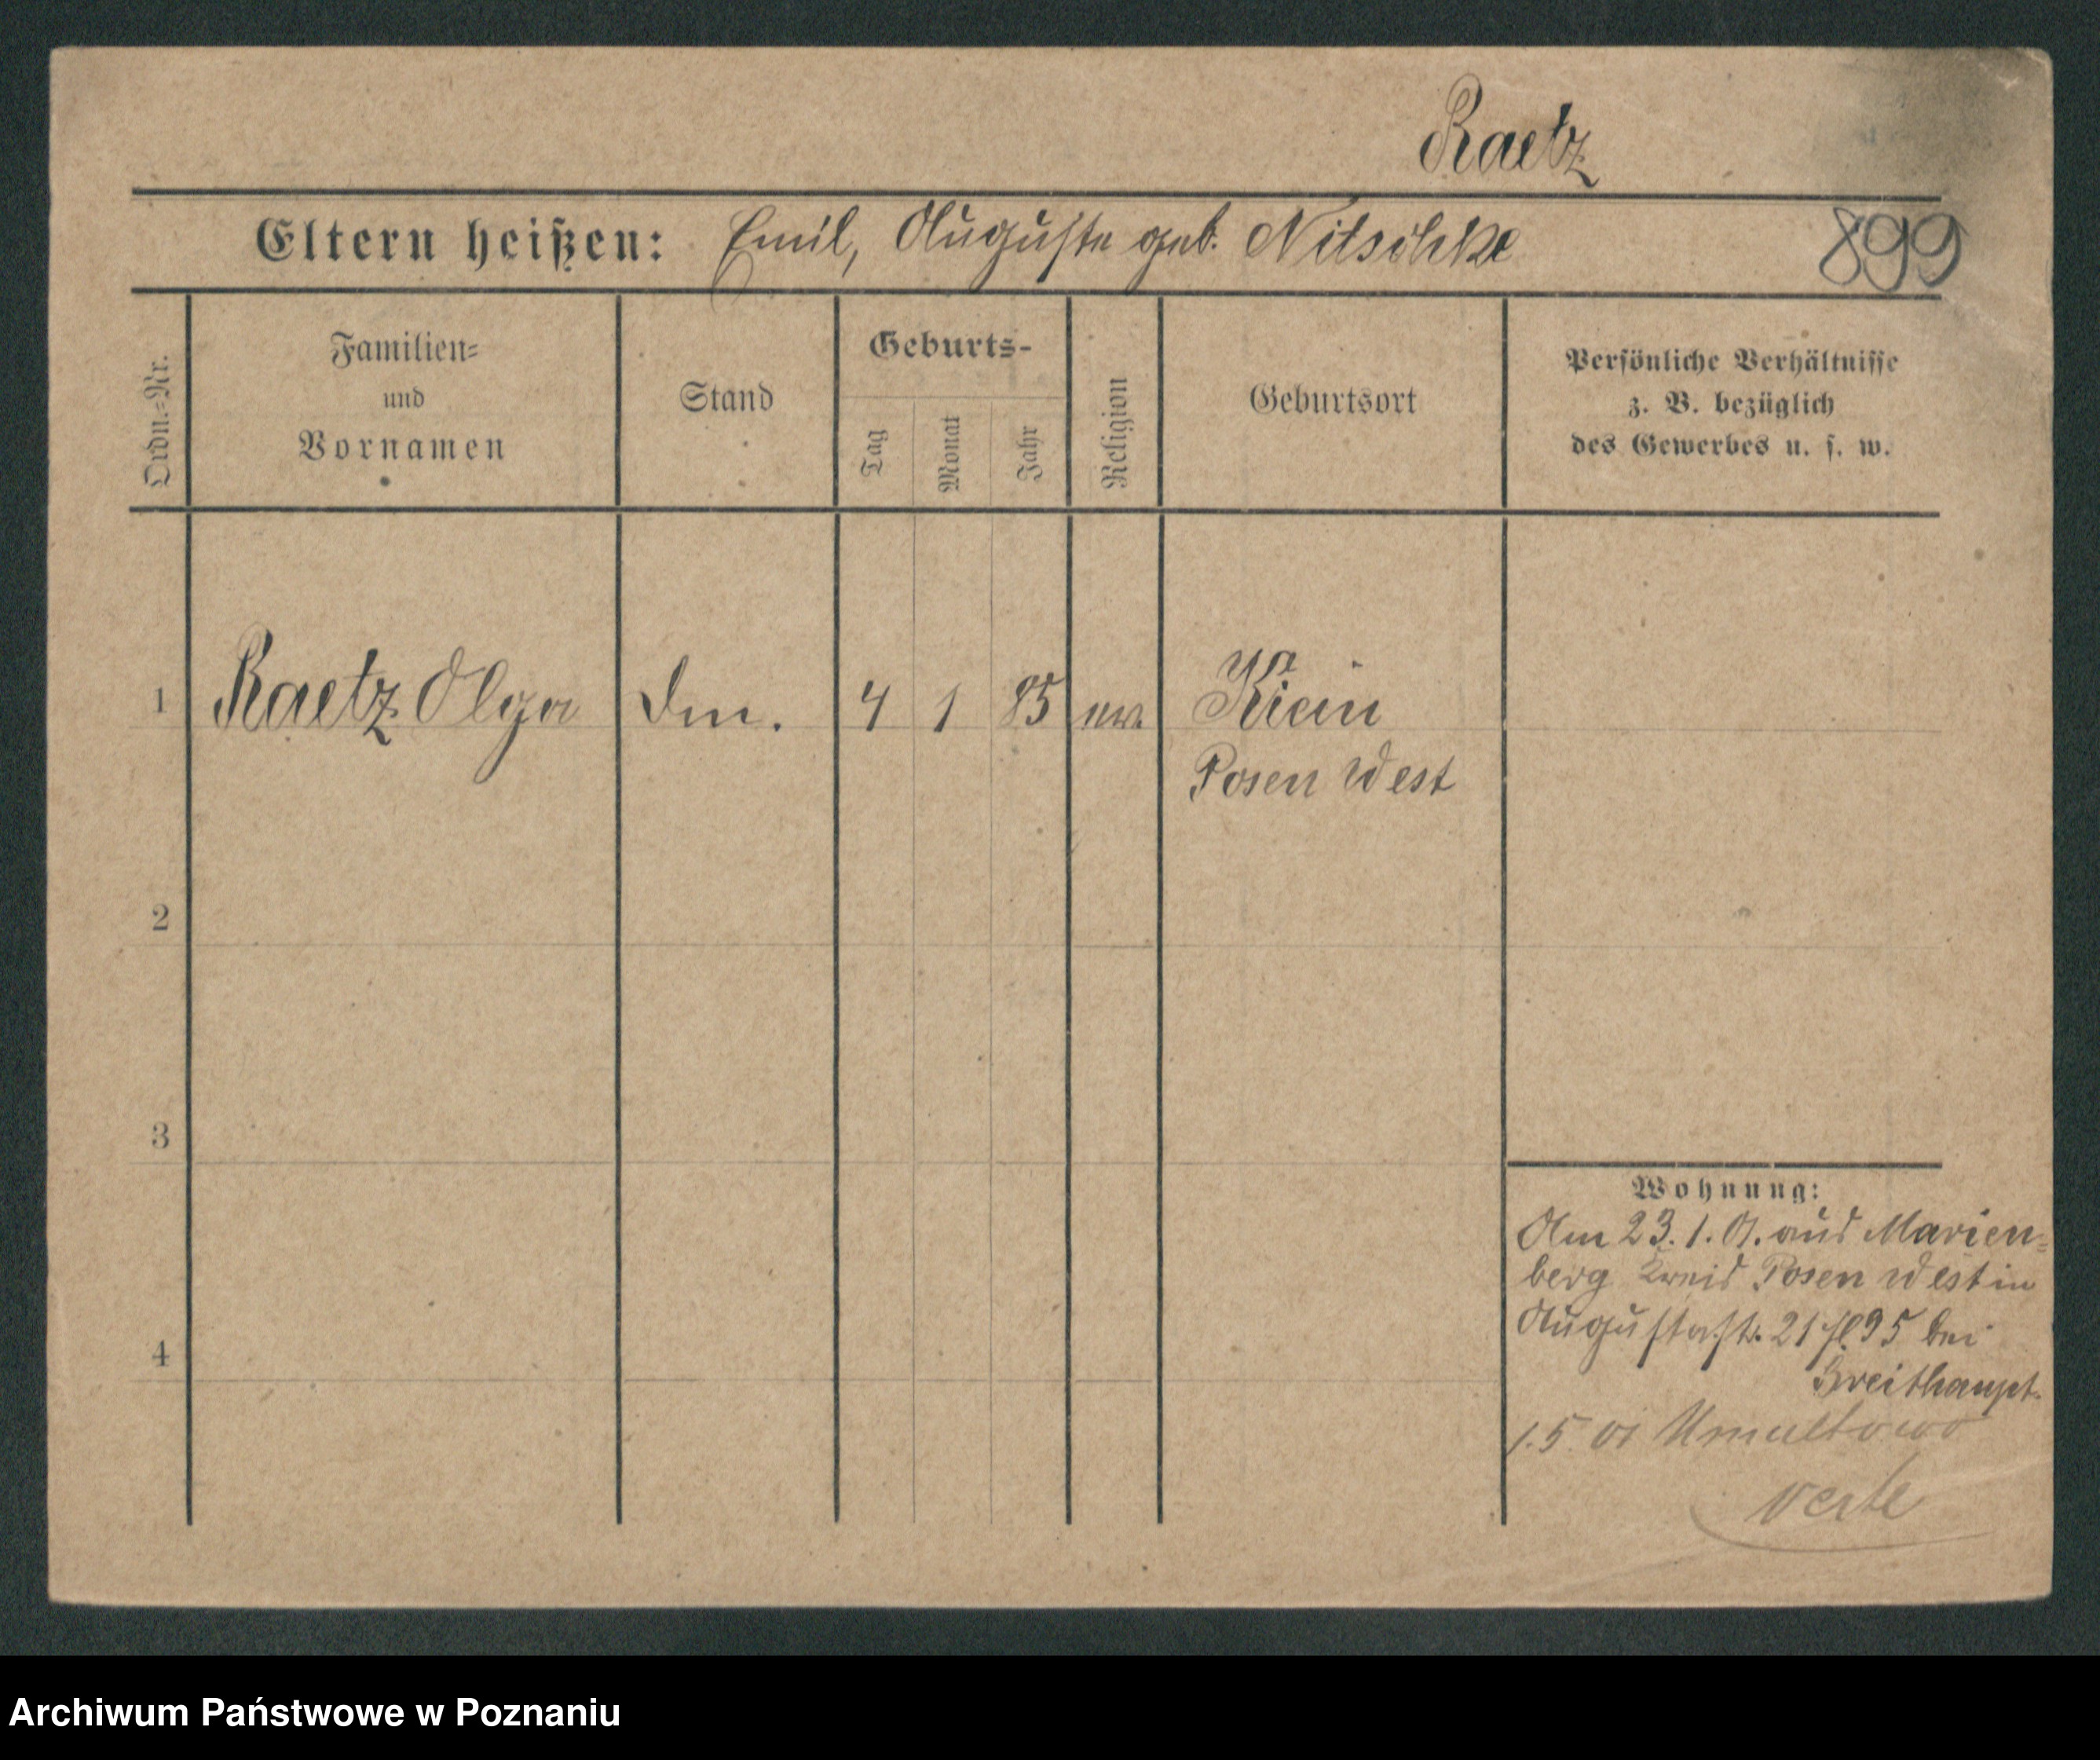 Raetz
Eltern heißen: Emil, Auguste geb. Nitschke
899
Ordn.=Nr.
Familien=
und
Vornamen
Stand
Geburts-
Tag
Monat
Jahr
Religion
Geburtsort
Persönliche Verhältnisse
z. B. bezüglich
des Gewerbes u. s. w.
1 Raetz Olga 4 1 85 ev.
Posen West
2
3
4
Wohnung:
Am 23. 1. 01. aus Marien=
berg Kreis Posen West in
Augustastr. 21 95 bei
Breithaupt.
1.5. 01 Umultowo
verte
Archiwum Państwowe w Poznaniu